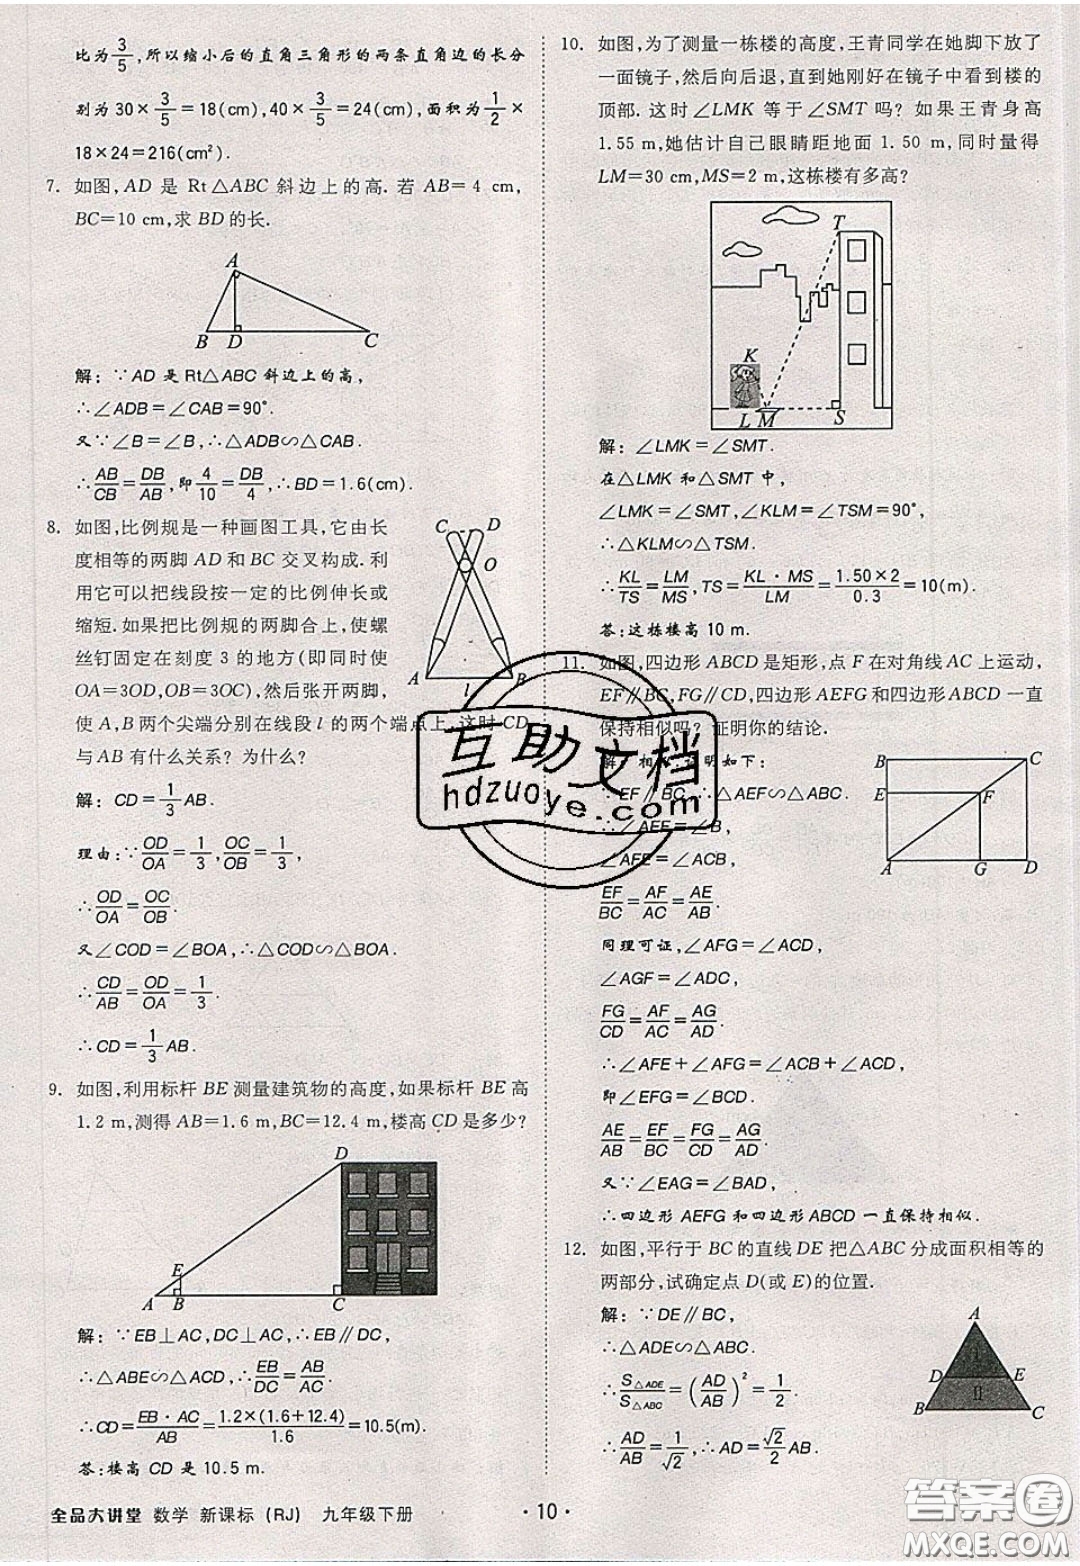 比为3/5,所以缩小后的直角三角形的两条直角边的长分
别为30×3/5=18(cm),40×3/5=24(cm),面积为1/2×
18×24=216(cm²).
7. 如图,AD 是 Rt△ABC 斜边上的高. 若 AB=4 cm,
BC=10 cm,求 BD 的长.
A
B D C
解:∵AD 是 Rt△ABC 斜边上的高,
∴∠ADB=∠CAB=90°.
又∵∠B=∠B,∴△ADB∽△CAB.
∴AB/CB=DB/AB,即4/10=DB/4,∴BD=1.6(cm).
8. 如图,比例规是一种画图工具,它由长
度相等的两脚 AD 和 BC 交叉构成. 利
用它可以把线段按一定的比例伸长或
缩短. 如果把比例规的两脚合上,使螺
丝钉固定在刻度 3 的地方(即同时使
OA=3OD,OB=3OC),然后张开两脚,
使 A,B 两个尖端分别在线段 l 的两个端点上,这时 CD
与 AB 有什么关系? 为什么?
C D
O
A l B
解:CD=1/3AB.
理由:∵OD/OA=1/3,OC/OB=1/3,
∴OD/OA=OC/OB.
又∠COD=∠BOA,∴△COD∽△BOA.
∴CD/AB=OD/OA=1/3.
∴CD=1/3AB.
9. 如图,利用标杆 BE 测量建筑物的高度,如果标杆 BE 高
1.2 m,测得 AB=1.6 m,BC=12.4 m,楼高 CD 是多少?
D
E
A B C
解:∵EB⊥AC,DC⊥AC,∴EB∥DC,
∴△ABE∽△ACD,∴EB/DC=AB/AC.
∴CD=EB·AC/AB=1.2×(1.6+12.4)/1.6=10.5(m).
答:楼高 CD 是 10.5 m.
10. 如图,为了测量一栋楼的高度,王青同学在她脚下放了
一面镜子,然后向后退,直到她刚好在镜子中看到楼的
顶部. 这时∠LMK 等于∠SMT 吗? 如果王青身高
1.55 m,她估计自己眼睛距地面 1.50 m,同时量得
LM=30 cm,MS=2 m,这栋楼有多高?
T
K
L M S
解:∠LMK=∠SMT.
在△LMK 和△SMT 中,
∠LMK=∠SMT,∠KLM=∠TSM=90°,
∴△KLM∽△TSM.
∴KL/TS=LM/MS,TS=KL·MS/LM=1.50×2/0.3=10(m).
答:这栋楼高 10 m.
11. 如图,四边形 ABCD 是矩形,点 F 在对角线 AC 上运动,
EF∥BC,FG∥CD,四边形 AEFG 和四边形 ABCD 一直
保持相似吗? 证明你的结论.
B C
E F
A G D
解:相似,证明如下:
∵EF∥BC,∴△AEF∽△ABC.
∴∠AEF=∠B,
∠AFE=∠ACB,
EF/BC=AF/AC=AE/AB.
同理可证,∠AFG=∠ACD,
∠AGF=∠ADC,
FG/CD=AF/AC=AG/AD.
∴∠AFE+∠AFG=∠ACB+∠ACD,
即∠EFG=∠BCD,
AE/AB=EF/BC=FG/CD=AG/AD.
又∵∠EAG=∠BAD,
∴四边形 AEFG 和四边形 ABCD 一直保持相似.
12. 如图,平行于 BC 的直线 DE 把△ABC 分成面积相等的
两部分,试确定点 D(或 E)的位置.
A
I
D E
II
B C
解:∵DE∥BC,
∴△ADE∽△ABC.
∴S△ADE/S△ABC=(AD/AB)²=1/2.
∴AD/AB=1/√2,∴AD=√2/2AB.
互助文档
hdzuoye.com
全品大讲堂 数学 新课标(RJ) 九年级下册
·10·
答案圈
MXQE.COM